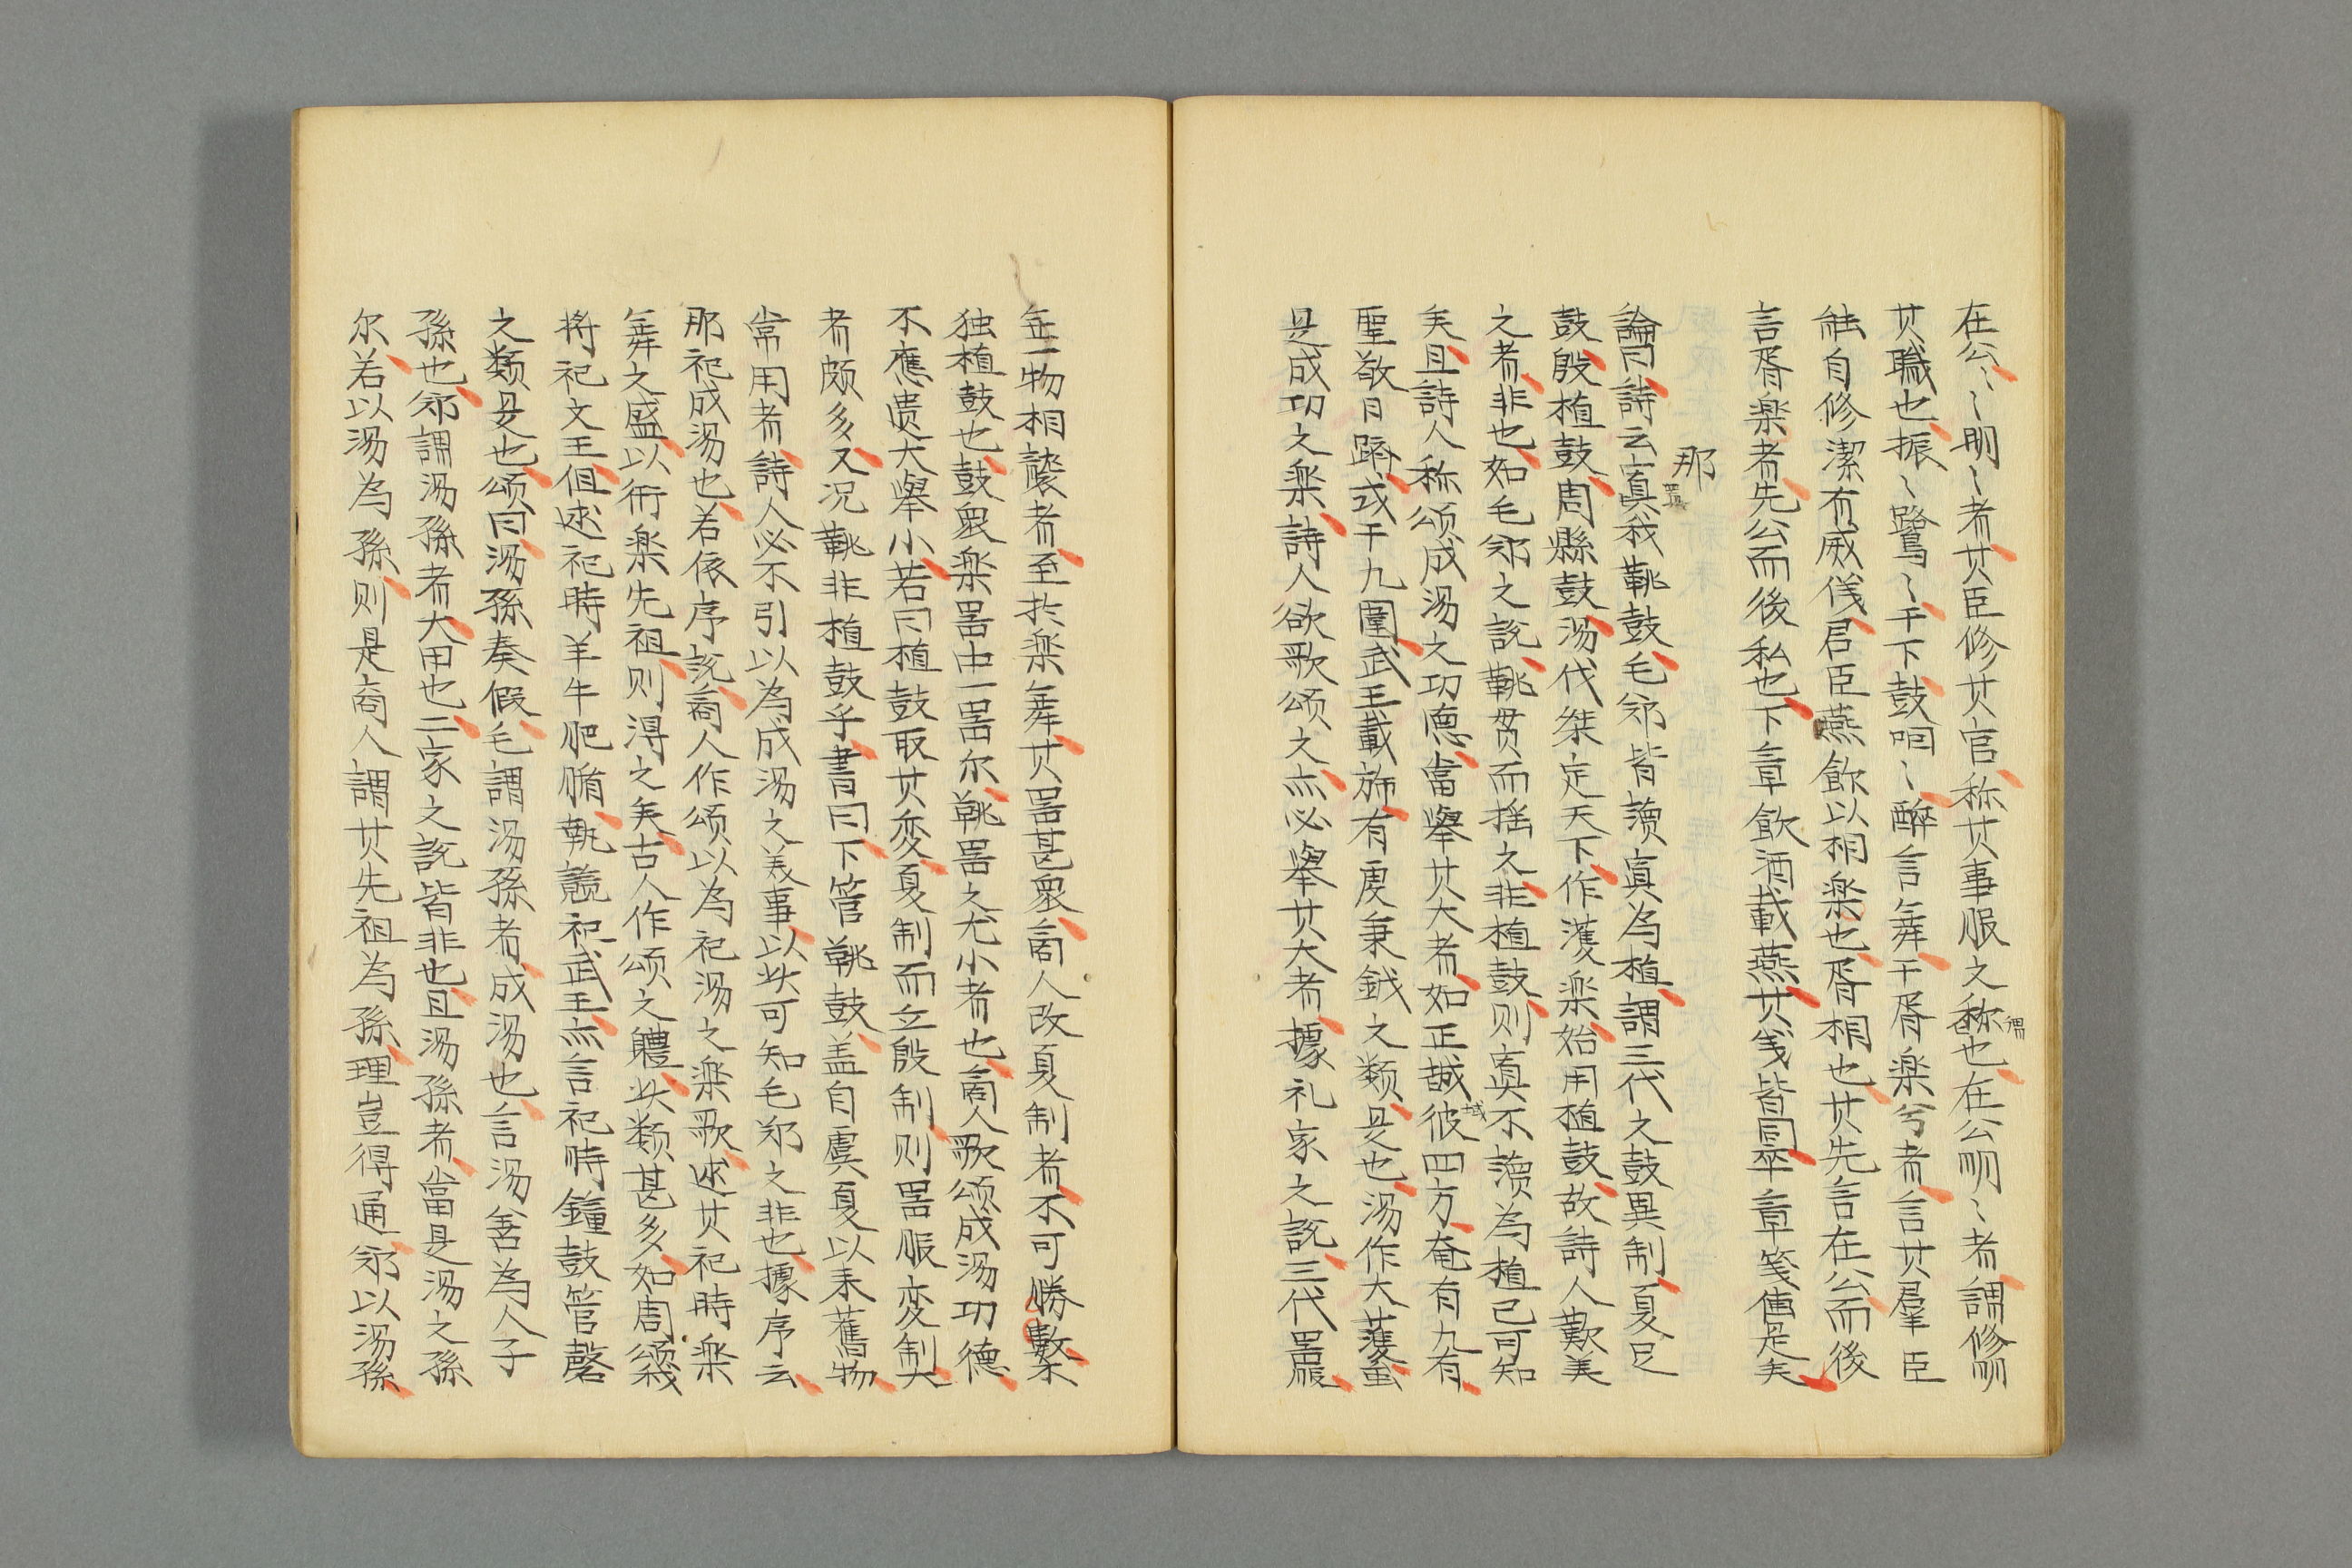 在公〻明〻者其臣修其官称其事服之称也在公明〻者謂修明
其職也振〻鷺〻于下鼓咽〻醉言舞于胥楽兮者言其羣臣
能自修潔有威儀君臣燕飲以相楽也胥相也其先言在公而後
言胥楽者先公而後私也下章飲酒載燕其義皆同卒章箋傳是矣
那
論曰詩云寘我鞉鼓毛鄭皆讀寘為植謂三代之鼓異制夏足
鼓殷植鼓周縣鼓湯伐桀定天下作濩楽始用植鼓故詩人歎美
之者非也如毛鄭之説鞉貫而揺之非植鼓則寘不讀為植已可知
矣且詩人称頌成湯之功徳當舉其大者如正域彼四方奄有九有
聖敬日躋式于九圍武王載斾有虔秉鉞之類是也湯作大濩蓋
是成功之楽詩人欲歌頌之亦必舉其大者據礼家之説三代器服
無一物相襲者至於楽舞其器甚衆商人改夏制者不可勝數不
独植鼓也鼓衆楽器中一器尓鞉器之尤小者也商人歌頌成湯功德
不應遺大舉小若曰植鼓取其変夏制而立殷制則器服変制大
者頗多又况鞉非植鼓乎書曰下管鞉鼓盖自虞夏以来舊物
常用者詩人必不引以為成湯之美事以此可知毛鄭之非也據序云
那祀成湯也若依序説商人作頌以為祀湯之楽歌述其祀時楽
舞之盛以衎楽先祖則得之矣古人作頌之體此類甚多如周頌我
將祀文王但述祀時羊牛肥腯執競祀武王亦言祀時鐘鼓管磬
之類是也頌曰湯孫奏假毛謂湯孫者成湯也言湯善為人子
孫也鄭謂湯孫者太甲也二家之説皆非也且湯孫者當是湯之孫
尓若以湯為孫則是商人謂其先祖為孫理豈得通鄭以湯孫